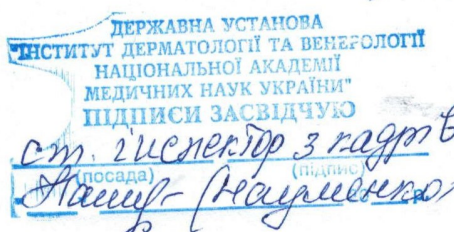 ДЕРЖАВНА УСТАНОВА
"ІНСТИТУТ ДЕРМАТОЛОГІЇ ТА ВЕНЕРОЛОГІЇ
НАЦІОНАЛЬНОЇ АКАДЕМІЇ
МЕДИЧНИХ НАУК УКРАЇНИ"
ПІДПИСИ ЗАСВІДЧУЮ
ст. інспектор з кадрів
(посада) (підпис)
(Науменко